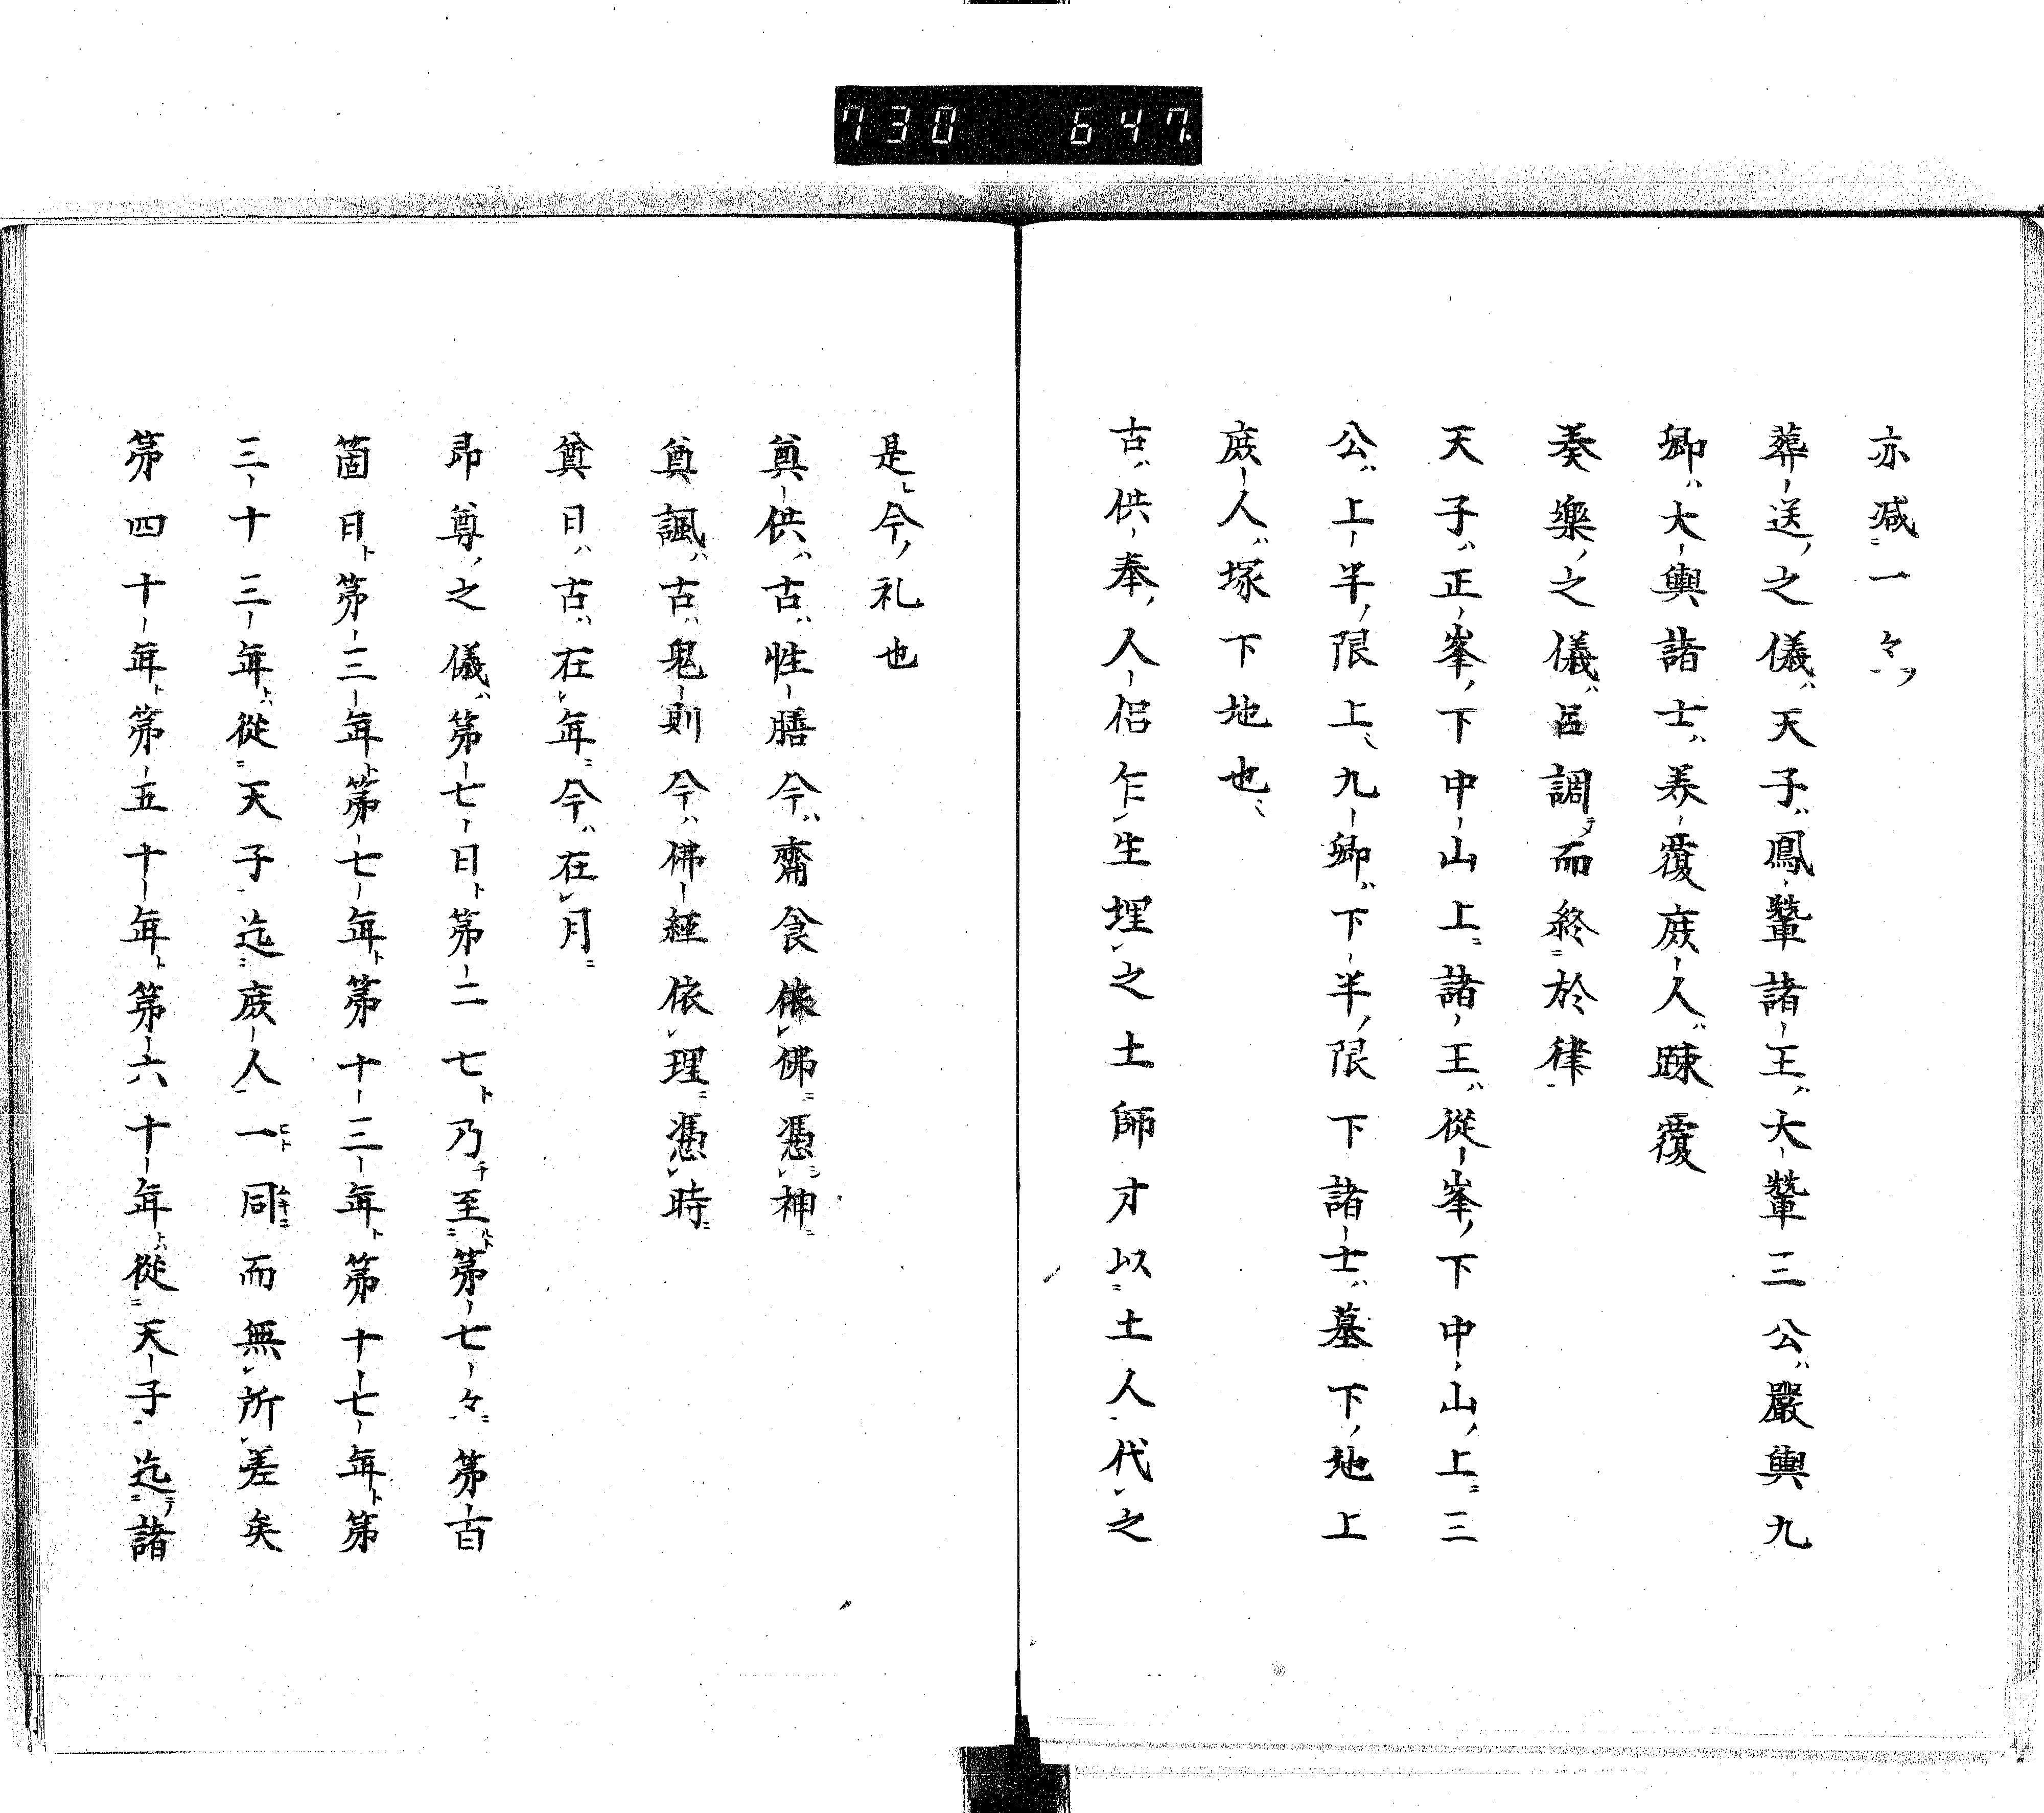 730 647
亦減一々
葬送之儀天子鳳輦諸王大輦三公嚴輿九
卿大輿諸士养覆庻人踈覆
奏樂之儀呂調而終於律
天子正峯下中山上諸王從峯下中山上三
公上半限上九卿下半限下諸士墓下地上
庻人塚下地也
古供奉人侶乍生埋之土師才以土人代之
是今礼也
奠供古牲膳今齋食依佛憑神
奠諷古鬼則今佛經依理憑時
奠日古在年今在月
昂尊之儀第七日第二七乃至第七々第百
箇日第三年第七年第十三年第十七年第
三十三年從天子迄庻人一同而無所差矣
第四十年第五十年第六十年從天子迄諸